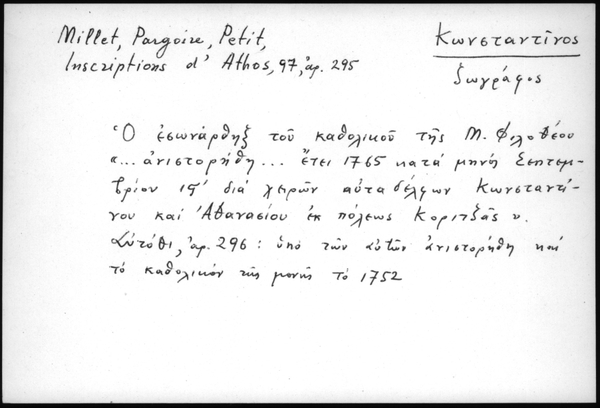 Millet, Pargoire, Petit,
Inscriptions d' Athos, 97, ἀρ. 295
Κωνσταντῖνος
ζωγράφος
Ὁ ἐσωνάρθηξ τοῦ καθολικοῦ τῆς Μ. Φιλοθέου
"... ἀνιστορήθη... ἔτει 1765 κατά μηνή Σεπτεμ-
βρίου ιϛ' διά χειρῶν αὐταδέλφων Κωνσταντί-
νου καί Ἀθανασίου ἐκ πόλεως Κοριτζᾶς".
Αὐτόθι, ἀρ. 296: ὑπό τῶν αὐτῶν ἀνιστορήθη καί
τό καθολικόν τῆς μονῆς τό 1752